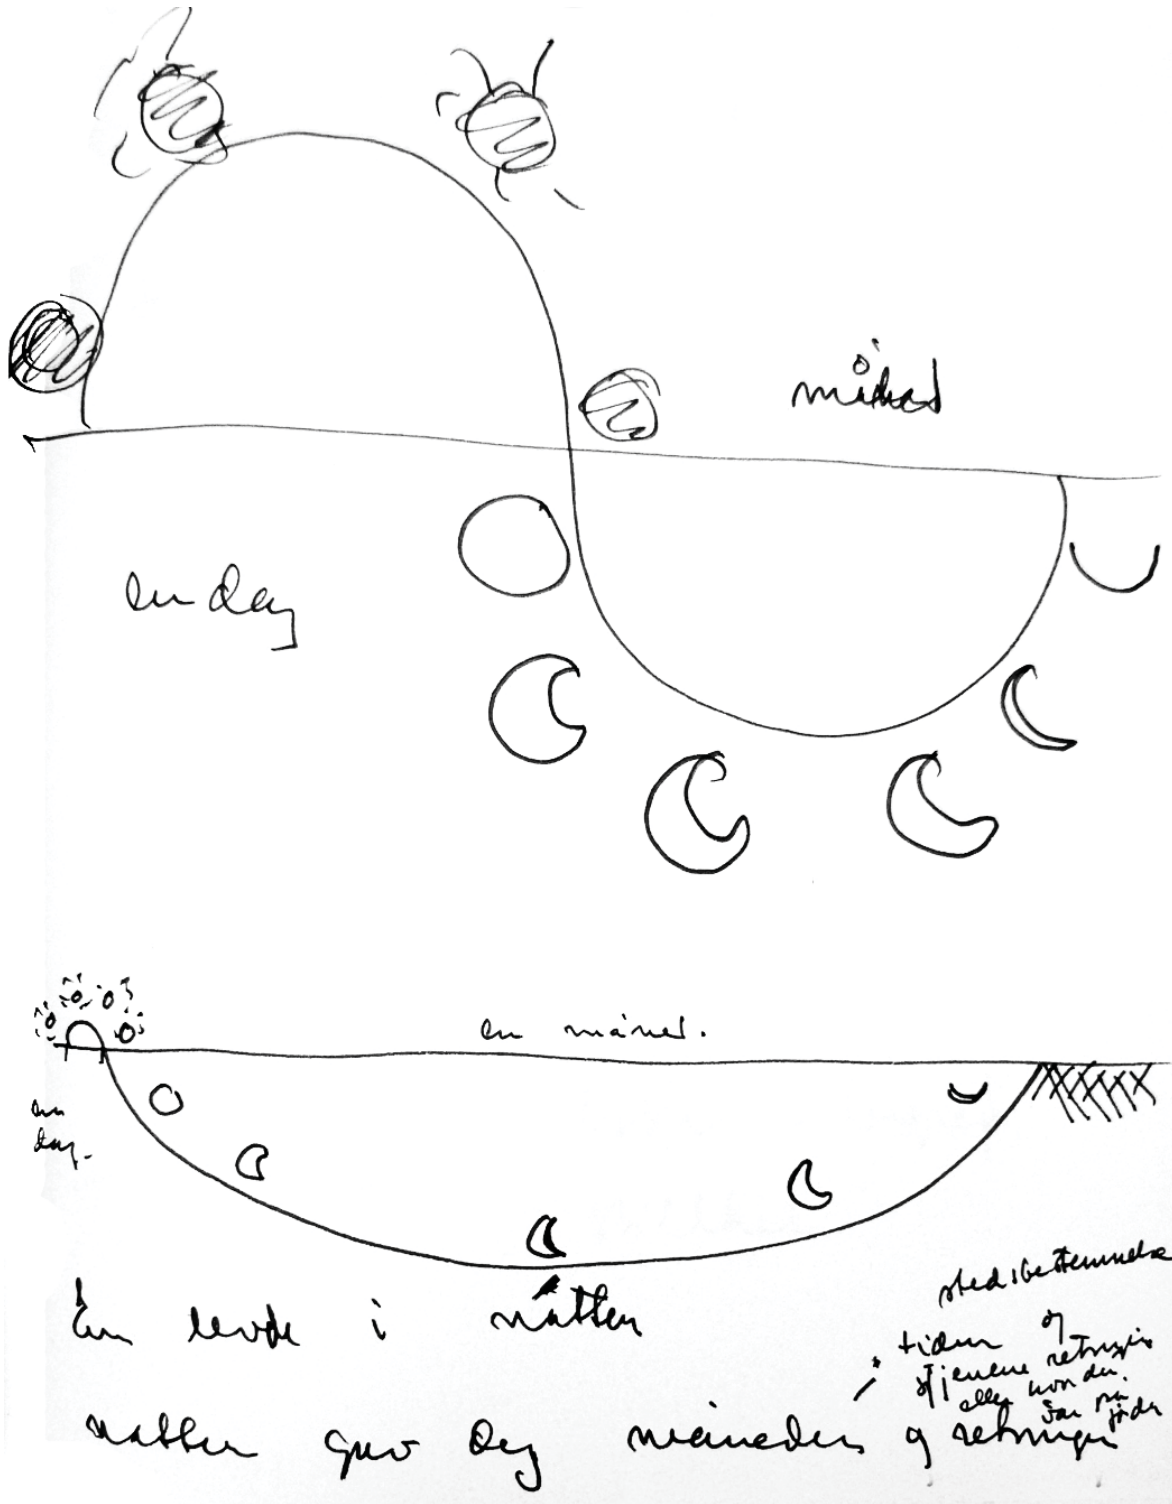 måned
en dag
en måned.
en
dag.
Én levde i natten
stedsbestemmelse
i tiden og
stjernene retningen
eller hvor du
var på jorden
natten gav deg måneden og retningen